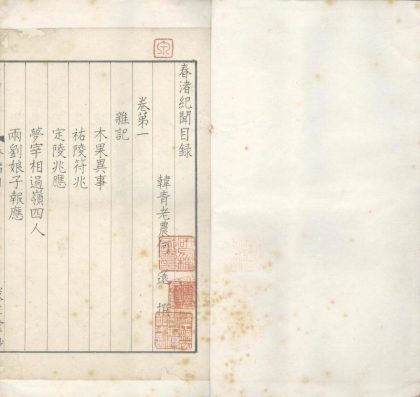 春渚紀聞目錄
韓青老農何薳撰
卷第一
雜記
木果異事
祐陵符兆
定陵兆應
夢宰相過嶺四人
兩劉娘子報應